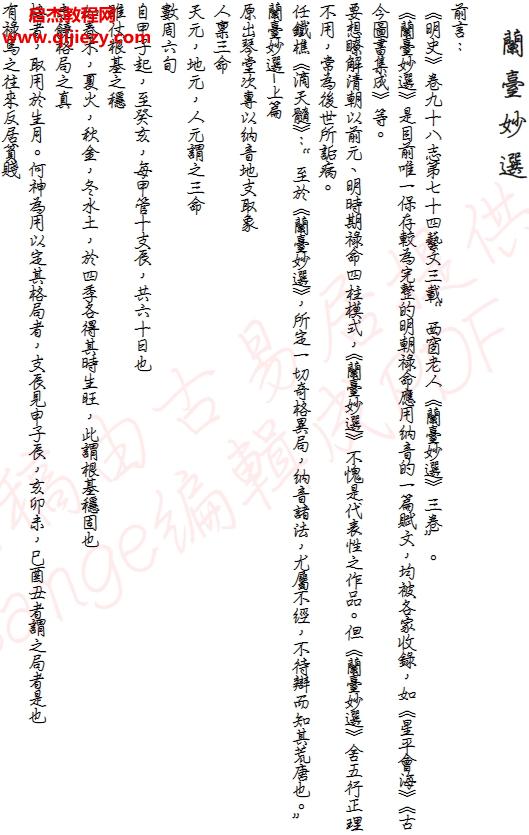 蘭臺妙選
前言：
《明史》卷九十八志第七十四藝文三載”西窗老人《蘭臺妙選》三卷”。
《蘭臺妙選》是目前唯一保存較為完整的明朝祿命應用納音的一篇賦文，均被各家收錄，如《星平會海》《古
今圖書集成》等。
要想瞭解清朝以前元、明時期祿命四柱模式，《蘭臺妙選》不愧是代表性之作品。但《蘭臺妙選》舍五行正理
不用，常為後世所詬病。
任鐵樵《滴天髓》：“至於《蘭臺妙選》，所定一切奇格異局，納音諸法，尤屬不經，不待辯而知其荒唐也。”
蘭臺妙選-上篇
原出琴堂次專以納音地支取象
人稟三命
天元，地元，人元謂之三命
數周六旬
自甲子起，至癸亥，每甲管十支辰，共六十日也
推付根基之穩
木，夏火，秋金，冬水土，於四季各得其時生旺，此謂根基穩固也
格局之真
者，取用於生月。何神為用以定其格局者，支辰見申子辰，亥卯未，巳酉丑者謂之局者是也
有祿馬之往來反居貧賤
启杰教程网
www.qijiezy.com
稿由古易居提供
ange編輯成PDF